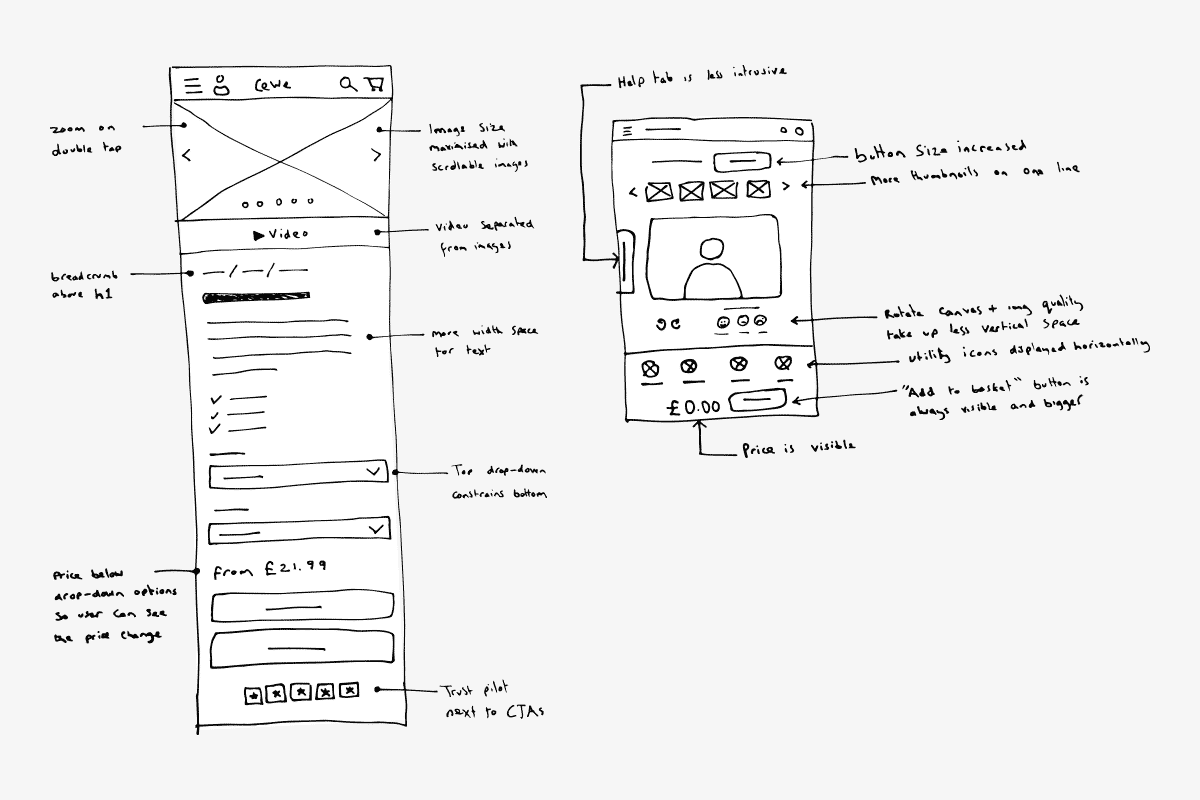 CeWe
zoom on
double tap
Image size
maximised with
scrollable images
Video
Video separated
from images
breadcrumb
above h1
more width space
for text
Top drop-down
constrains bottom
from £21.99
Price below
drop-down options
so user can see
the price change
Trust pilot
next to CTAs
Help tab is less intrusive
button size increased
More thumbnails on one line
Rotate canvas + img quality
take up less vertical space
utility icons displayed horizontally
"Add to basket" button is
always visible and bigger
£0.00
Price is visible